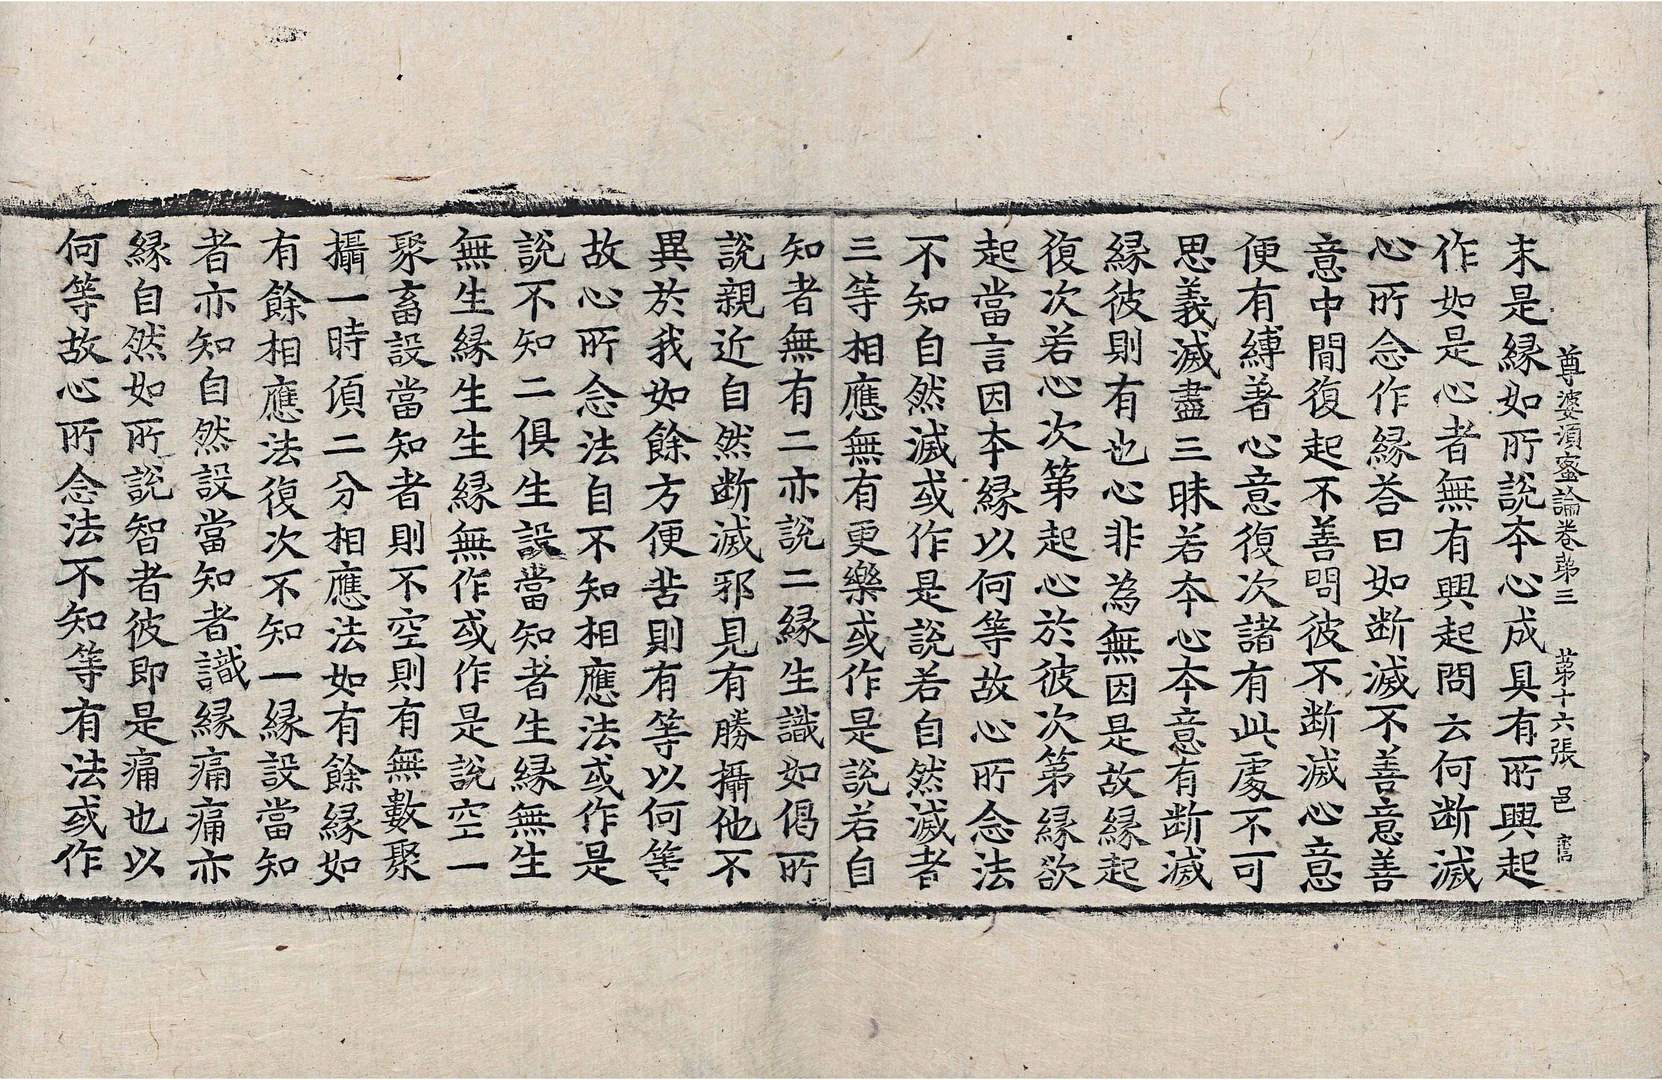 尊婆須蜜論卷第三　第十六張　邑
末是縁如所說本心成具有所興起
作如是心者無有興起問云何断滅
心所念作縁荅曰如断滅不善意善
意中間復起不善問彼不断滅心意
便有縛著心意復次諸有此處不可
思義滅盡三昧若本心本意有断滅
縁彼則有也心非為無因是故縁起
復次若心次第起心於彼次第縁欲
起當言因本縁以何等故心所念法
不知自然滅或作是說若自然滅者
三等相應無有更樂或作是說若自
知者無有二亦說二縁生識如偈所
說親近自然断滅邪見有勝攝他不
異於我如餘方便苦則有等以何等
故心所念法自不知相應法或作是
說不知二俱生設當知者生縁無生
無生縁生生縁無作或作是說空一
聚畜設當知者則不空則有無數聚
攝一時湏二分相應法如有餘縁如
有餘相應法復次不知一縁設當知
者亦知自然設當知者識縁痛痛亦
縁自然如所說智者彼即是痛也以
何等故心所念法不知等有法或作